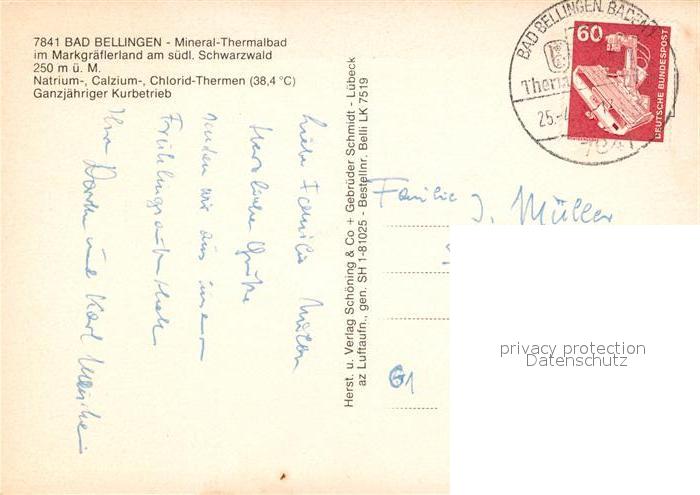 7841 BAD BELLINGEN - Mineral-Thermalbad
im Markgräflerland am südl. Schwarzwald
250 m ü. M.
Natrium-, Calzium-, Chlorid-Thermen (38,4 °C)
Ganzjähriger Kurbetrieb
Liebe Familie Müller
Herzliche Grüße
senden wir aus unserem
Frühlingsaufenthalt
Ihre
und Karl
Herst. u. Verlag Schöning & Co + Gebrüder Schmidt - Lübeck
az Luftaufn., gen. SH 1-81025 - Bestellnr. Belli LK 7519
BAD BELLINGEN, BADEN
Therma
25.-
7841
60
DEUTSCHE BUNDESPOST
Familie J. Müller
61
privacy protection
Datenschutz